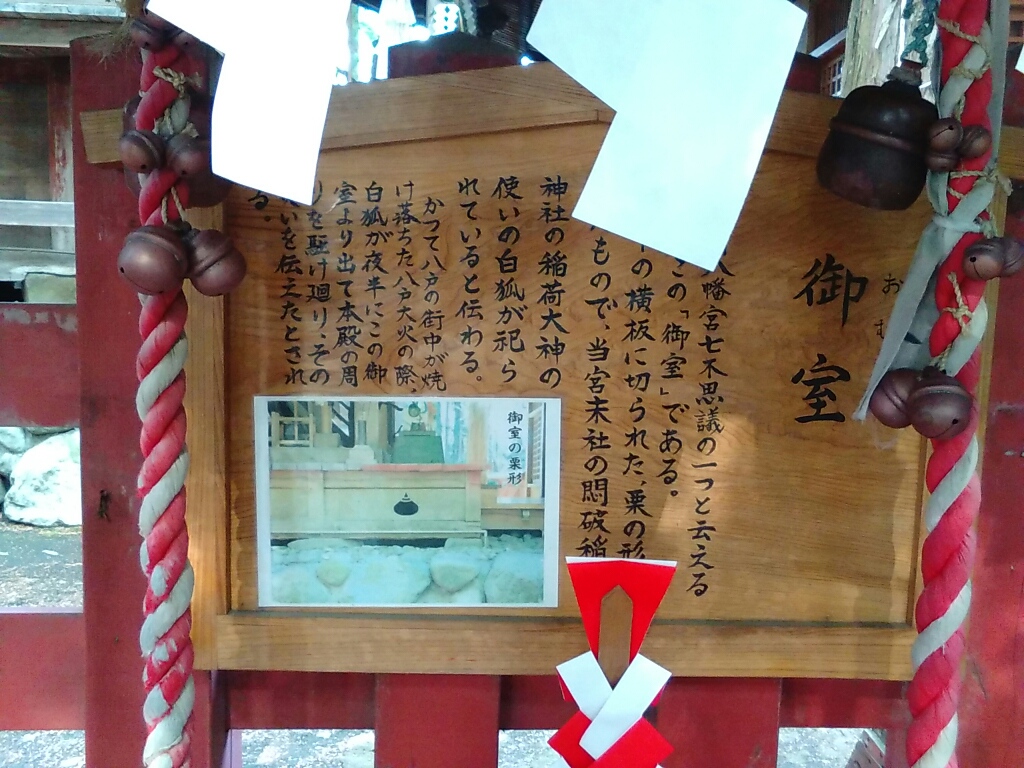 御室
お
幡宮七不思議の一つと云える
の「御室」である。
の横板に切られた、栗の形
もので、当宮末社の閇破稲
神社の稲荷大神の
使いの白狐が祀ら
れていると伝わる。
かつて八戸の街中が焼
け落ちた八戸大火の際、
白狐が夜半にこの御
室より出て本殿の周
りを駈け廻り、その
いを伝えたとされ
る。
御室の栗形